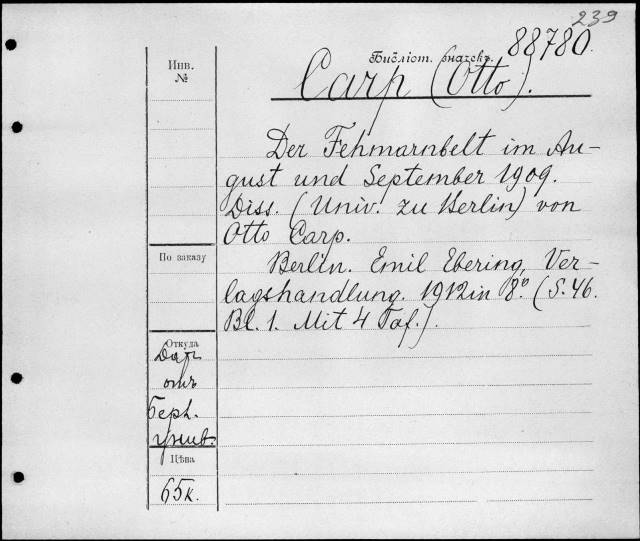 239
88780.
Инв.
№
Библіот. значекъ.
Carp (Otto).
Der Fehmarnbelt im Au-
gust und September 1909.
Diss. (Univ. zu Berlin) von
Otto Carp.
По заказу
Berlin. Emil Ebering, Ver-
lagshandlung. 1912 in 8º. (S. 46.
Bl. 1. Mit 4 Taf.).
Откуда
Даръ
отъ
Берл.
унив.
Цѣна
65к.